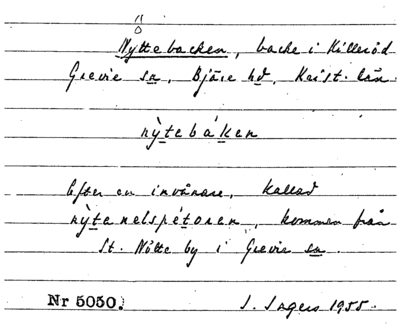 Nyttebacken, backe i Killeröd
Grevie sn, Bjäre hd, Krist. län.
nỳtebáken
Efter en invånare, kallad
nỳtanelspétoren, kommen från
St. Nötte by i Grevie sn.
Nr 5050. J. Ingers 1955.